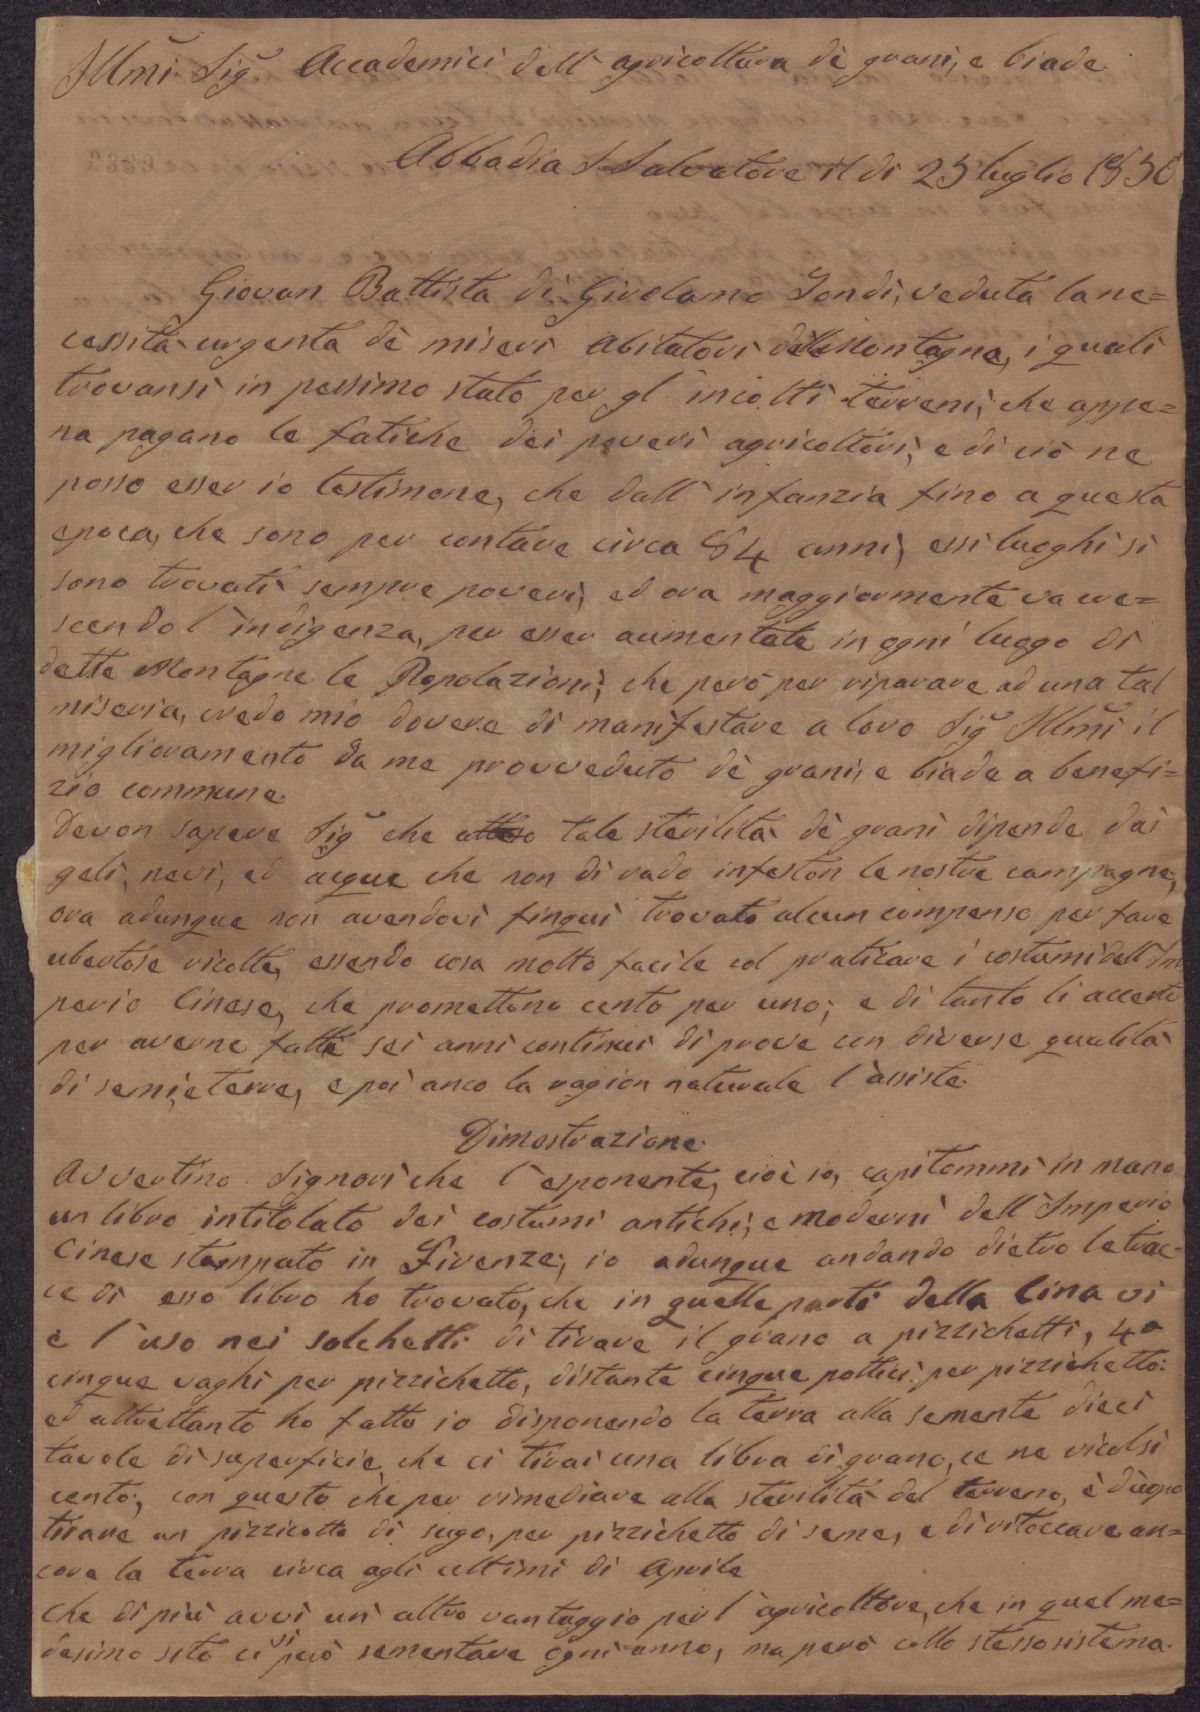 Illmi Sigri Accademici dell'agricoltura di grani, e biade
Abbadia S Salvatore il di 25 luglio 1830
Giovan Battista di Girolamo Tondi, veduta la ne=
cessità urgenta dè miseri abitatori delle Montagne, i quali
trovansi in pessimo stato per gl'incolti terreni, che appe=
na pagano le fatiche dei poveri agricoltori, e di ciò ne
posso esser io testimone, che dall'infanzia fino a questa
epoca, che sono per contare circa 84 anni, essi luoghi si
sono trovati sempre poveri, ed ora maggiormente va cre=
scendo l'indigenza, per esser aumentate in ogni luogo di
dette Montagne le Popolazioni; che però per riparare ad una tal
miseria, credo mio dovere di manifestare a loro Sigri Illmi il
miglioramento da me provveduto dè grani, e biade a benefi=
zio commune.
Devon sapere Sigri che tale sterilità dè grani dipende dai
geli, nevi, ed acque che non di rado infeston le nostre campagne,
ora adunque non avendovi finqui trovato alcun compenso per fare
ubertose ricolte, essendo cosa molto facile col praticare i costumi dell'Im
perio Cinese, che promettono cento per uno; e di tanto li accerto
per averne fatte sei anni continui di prove con diverse qualità
di semi, e terre, e poi anco la ragion naturale l'assiste.
Dimostrazione.
Avvertino Signori che l'esponente, cioè io, capitommi in mano
un libro intitolato dei costumi antichi, e moderni dell'Imperio
Cinese stampato in Firenze; io adunque andando dietro le trac=
ce di esso libro ho trovato, che in quelle parti della Cina vi
è l'uso nei solchetti di tirare il grano a pizzichetti, 4 o
cinque vaghi per pizzichetto, distante cinque pollici per pizzichetto:
ed altrettanto ho fatto io disponendo la terra alla semente dieci
tavole di superficie che ci tirai una libra di grano, ce ne ricolsi
cento; con questo che per rimediare alla sterilità del terreno, è d'uopo
tirare un pizzicotto di sugo, per pizzichetto di seme, e di ritoccare an=
cora la terra circa agli ultimi di Aprile
Che di più avvi un'altro vantaggio per l'agricoltore, che in quel me=
desimo sito ci si può sementare ogni anno, ma però collo stesso sistema.